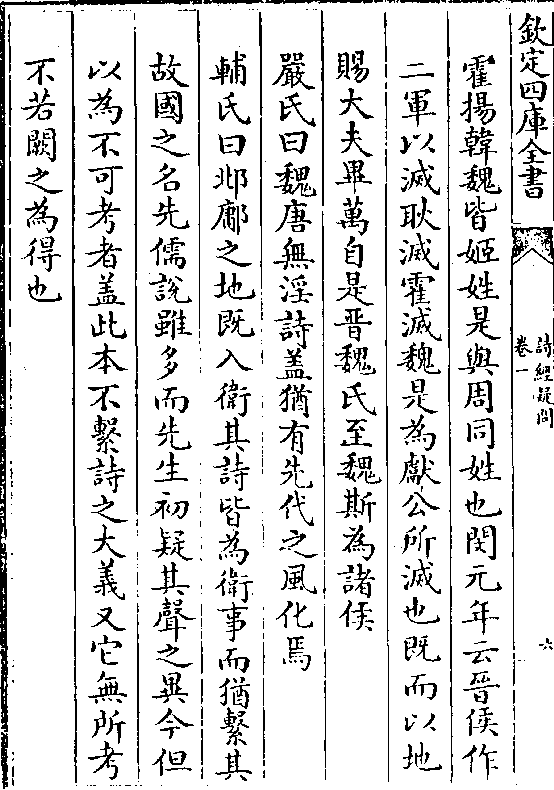 欽定四庫全書
詩經疑問
卷一
六
霍揚韓魏皆姬姓是與周同姓也閔元年云晉侯作
二軍以滅耿滅霍滅魏是為獻公所滅也既而以地
賜大夫畢萬自是晉魏氏至魏斯為諸侯
嚴氏曰魏唐無淫詩盖猶有先代之風化焉
輔氏曰邶鄘之地既入衛其詩皆為衛事而猶繫其
故國之名先儒說雖多而先生初疑其聲之異今但
以為不可考者盖此本不繫詩之大義又它無所考
不若闕之為得也